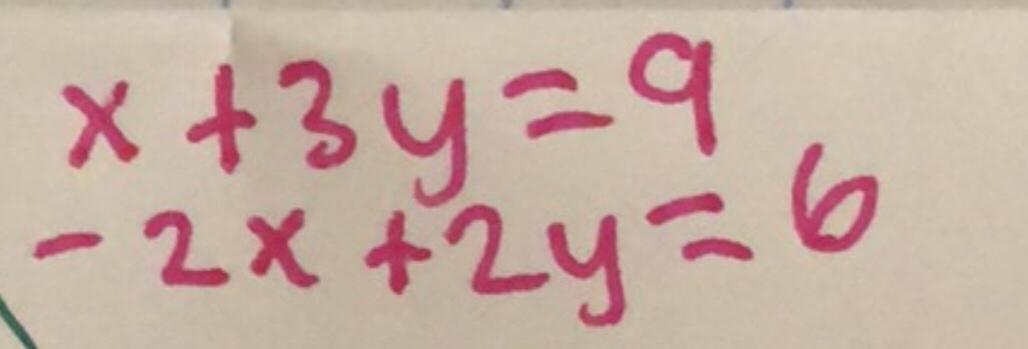 x + 3y = 9
- 2x + 2y = 6